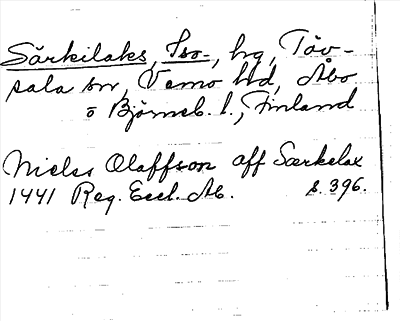 Särkilaks, Iso-, hg, Töv-
sala sn, Vemo hd, Åbo
o Björneb. l., Finland
Niels Olaffson aff Særkelax
1441 Reg. Eccl. Ab. s. 396.